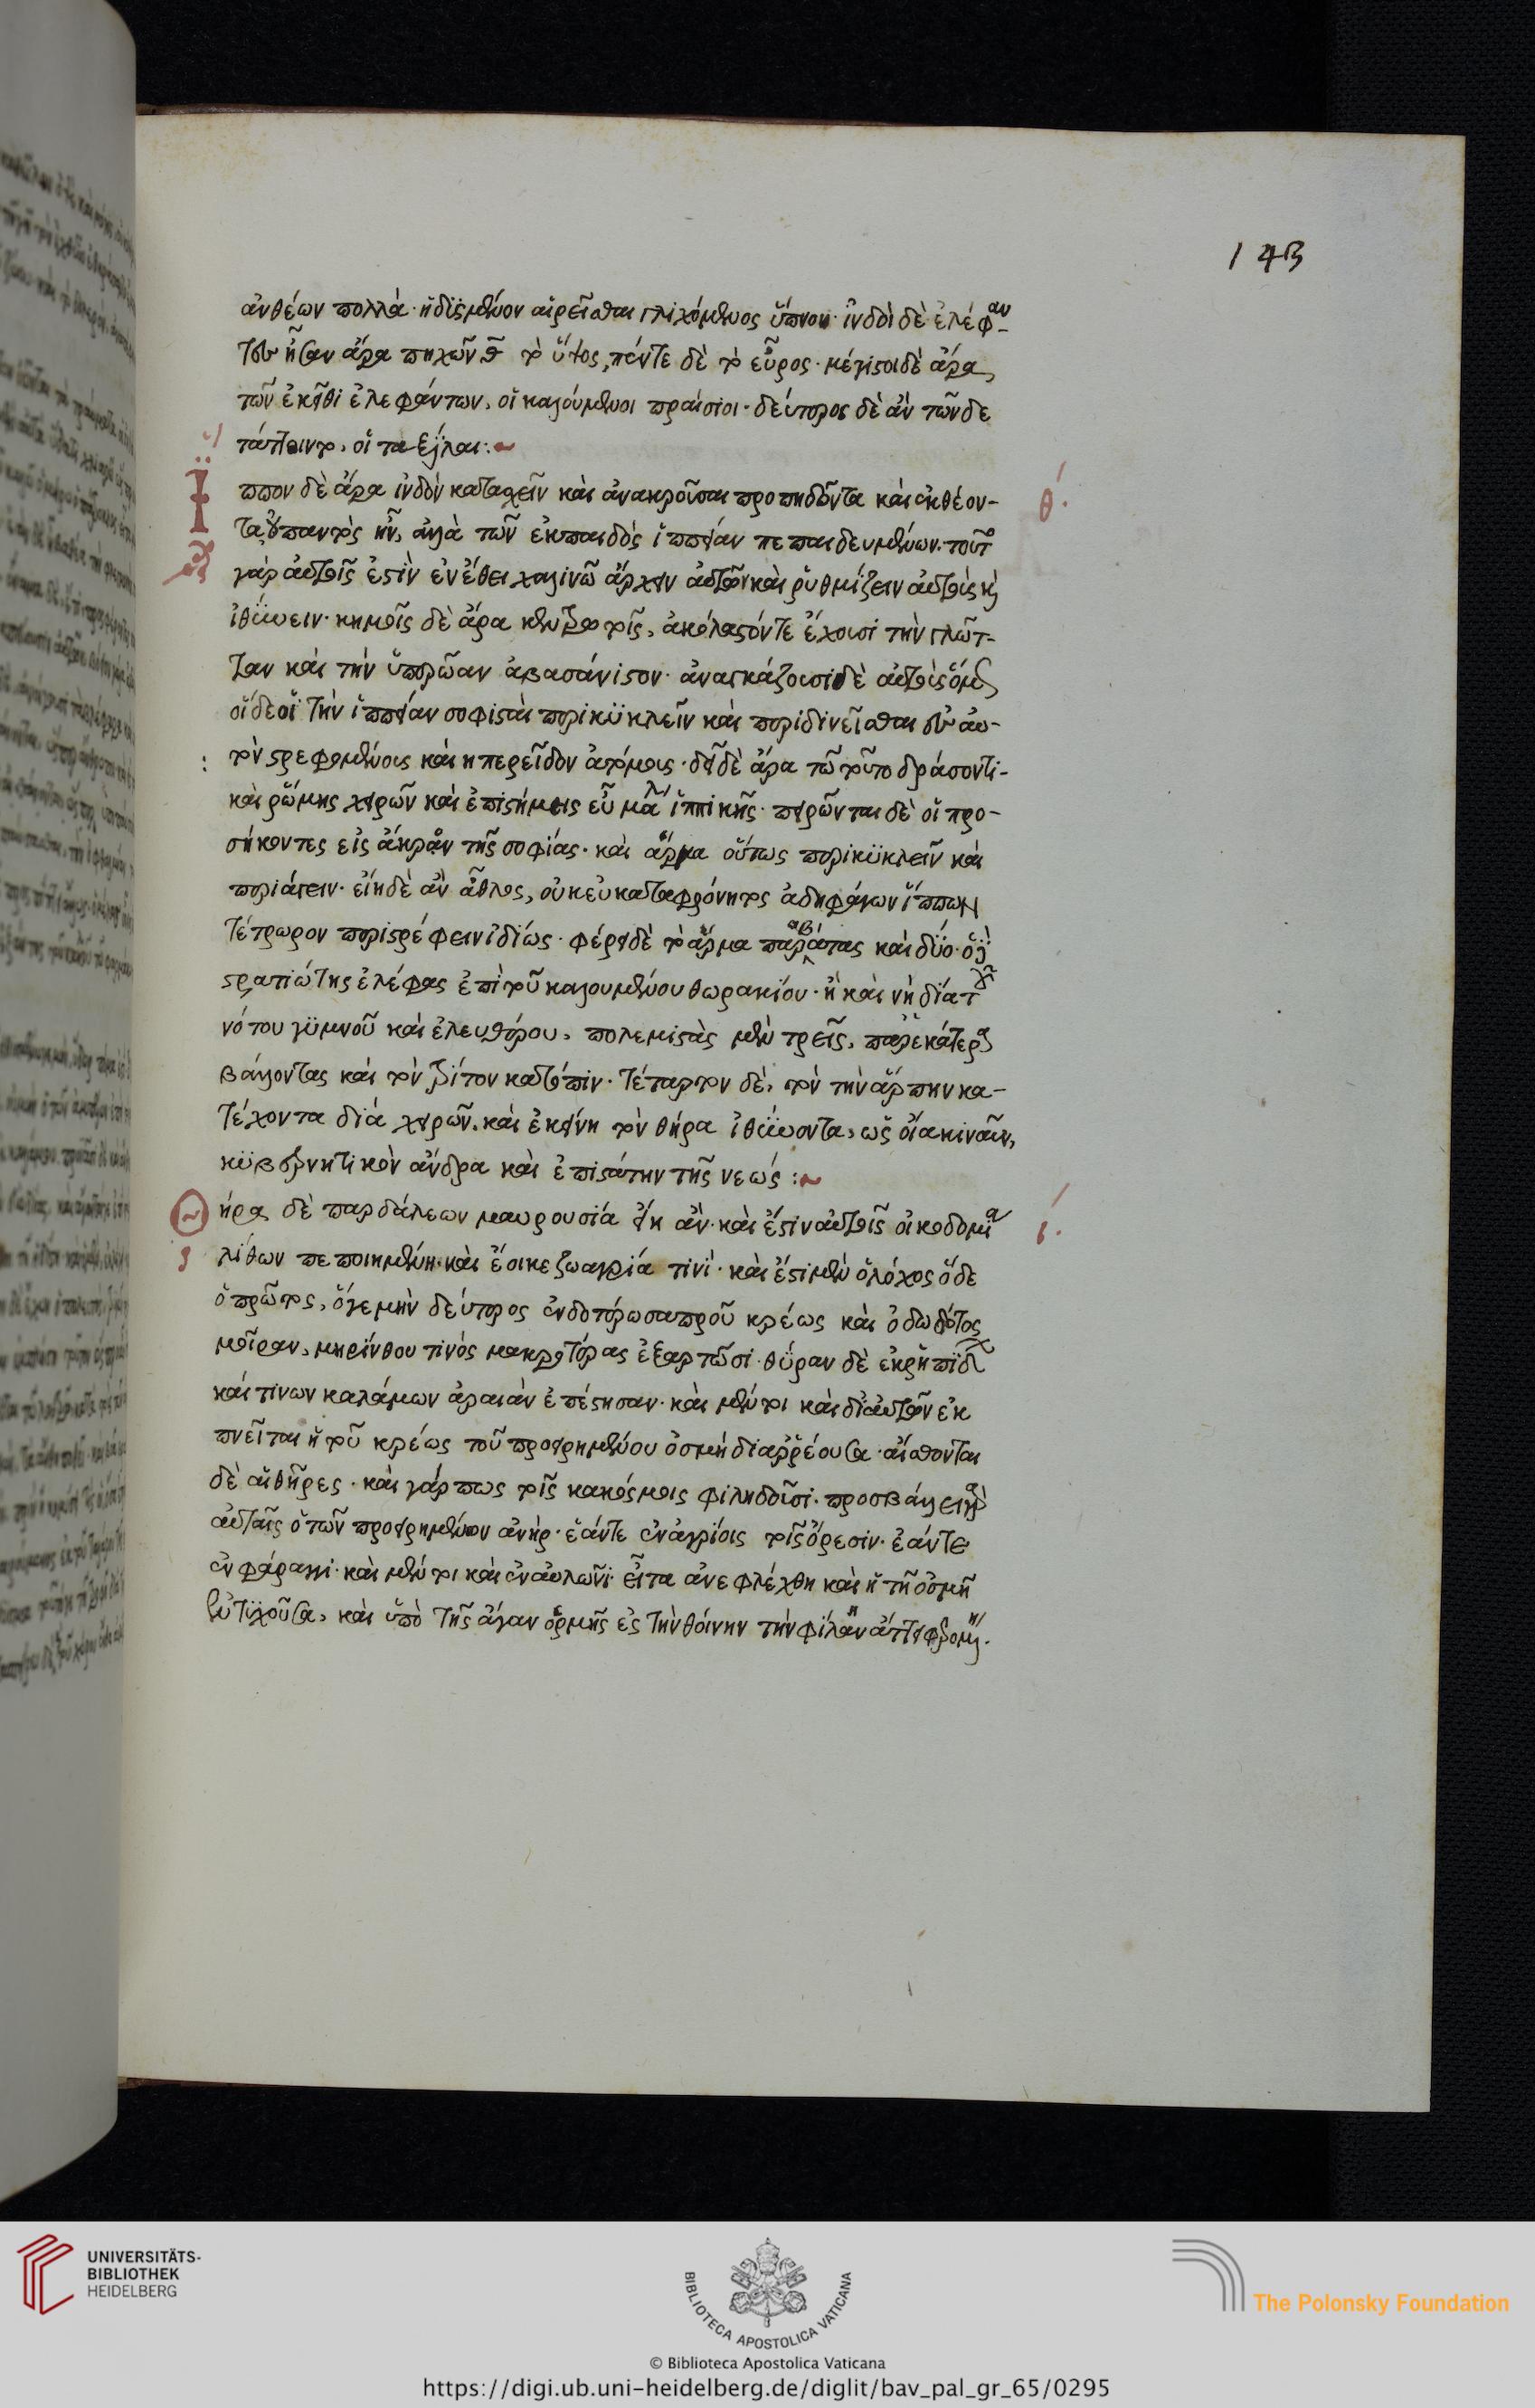 143
ἀνθέων πολλὰ· ἥδιςμένον αἱρεῖσθαι γλιχόμενος ὕπνου· ἰνδοὶ δὲ ἐλέφαν-
τες ἦσαν ἄρα πηχῶν θ τὸ ὕψος, πέντε δὲ τὸ εὖρος· μέγιστοι δὲ ἄρα,
τῶν ἐκεῖθι ἐλεφάντων, οἱ καλούμενοι πραίσιοι· δεύτεροι δὲ ἂν τῶνδε
τάττοιντο, οἱ ταξίλαι:~
θ'.
Ἵππον δὲ ἄρα ἰνδὸν κατασχεῖν καὶ ἀνακροῦσαι προπηδῶντα καὶ ἐκθέον-
τα, οὐ παντὸς ἦν, ἀλλὰ τῶν ἐκ παιδὸς ἱππείαν πεπαιδευμένων· τοῦτο
γὰρ αὐτοῖς ἐστὶν ἐν ἔθει χαλινῷ ἄρχειν αὐτῶν καὶ ῥυθμίζειν αὐτοὺς καὶ
ἰθύνειν· κημοῖς δὲ ἄρα κεντρωτοῖς, ἀκόλαστόν τε ἔχουσι τὴν γλῶτ-
ταν καὶ τὴν ὑπερῴαν ἀβασάνιστον· ἀναγκάζουσι δὲ αὐτοὺς ὅμως
οἵδε οἱ τὴν ἱππείαν σοφισταὶ περικυκλεῖν καὶ περιδινεῖσθαι ἐς αὐ-
τὸν στρεφομένους καὶ ᾗπερ εἶδον ἀτόμους· δεῖ δὲ ἄρα τῷ τοῦτο δράσοντι·
καὶ ῥώμης χειρῶν καὶ ἐπιστήμης εὖ μάλα ἱππικῆς· πειρῶνται δὲ οἱ προ-
σήκοντες εἰς ἄκρον τῆς σοφίας· καὶ ἅρμα οὕτως περικυκλεῖν καὶ
περιάγειν· εἴη δὲ ἂν ἆθλος, οὐκ εὐκαταφρόνητος ἀδηφάγων ἵππων
τέτρωρον περιστρέφειν ῥᾳδίως· φέρει δὲ τὸ ἅρμα παραβάτας καὶ δύο· ὁ δὲ
στρατιώτης ἐλέφας ἐπὶ τοῦ καλουμένου θωρακίου· ἢ καὶ νὴ δία τοῦ
νότου γυμνοῦ καὶ ἐλευθέρου, πολεμιστὰς μὲν τρεῖς, παρ' ἑκάτερα
βάλλοντας καὶ τὸν τρίτον κατόπιν· τέταρτον δὲ, τὸν τὴν ἅρπην κα-
τέχοντα διὰ χειρῶν, καὶ ἐκείνῃ τὸν θῆρα ἰθύνοντα, ὡς οἴακι ναῦν,
κυβερνητικὸν ἄνδρα καὶ ἐπιστάτην τῆς νεώς:~
ι'.
Θήρα δὲ παρδάλεων μαυρουσία εἴη ἂν· καὶ ἔστιν αὐτοῖς οἰκοδομία
λίθων πεποιημένη· καὶ ἔοικε ζωαγρίᾳ τινί· καὶ ἔστι μὲν ὁ λόχος ὅδε
ὁ πρῶτος, ὅγε μὴν δεύτερος ἐνδοτέρω σαπροῦ κρέως καὶ ὀδωδότος
μοῖραν, μηρίνθου τινὸς μακροτέρας ἐξαρτῶσι· θύραν δὲ ἐκ ῥιπίδων
καί τινων καλάμων ἀραιὰν ἐπέστησαν· καὶ μέντοι καὶ δι' αὐτῶν ἐκ
πνεῖται ἡ τοῦ κρέως τοῦ προειρημένου ὀσμὴ διαῤῥέουσα· αἰσθονται
δὲ οἱ θῆρες· καὶ γάρ πως τοῖς κακόσμοις φιληδοῦσι· προσβάλλει γὰρ
αὐταῖς ὁ τῶν προειρημένων ἀνὴρ· ἐάντε ἐν ἀγρίοις τοῖς ὄρεσιν· ἐάντε
ἐν φάραγγι· καὶ μέντοι καὶ ἐν αὐλῶνι· εἶτα ἀνεφλέχθη καὶ ἡ τῇ ὀσμῇ
ἐντυχοῦσα, καὶ ὑπὸ τῆς ἄγαν ὁρμῆς ἐς τὴν θοίνην τὴν φίλην ᾄττει φερομένη·
UNIVERSITÄTS-
BIBLIOTHEK
HEIDELBERG
BIBLIOTECA APOSTOLICA VATICANA
The Polonsky Foundation
© Biblioteca Apostolica Vaticana
https://digi.ub.uni-heidelberg.de/diglit/bav_pal_gr_65/0295